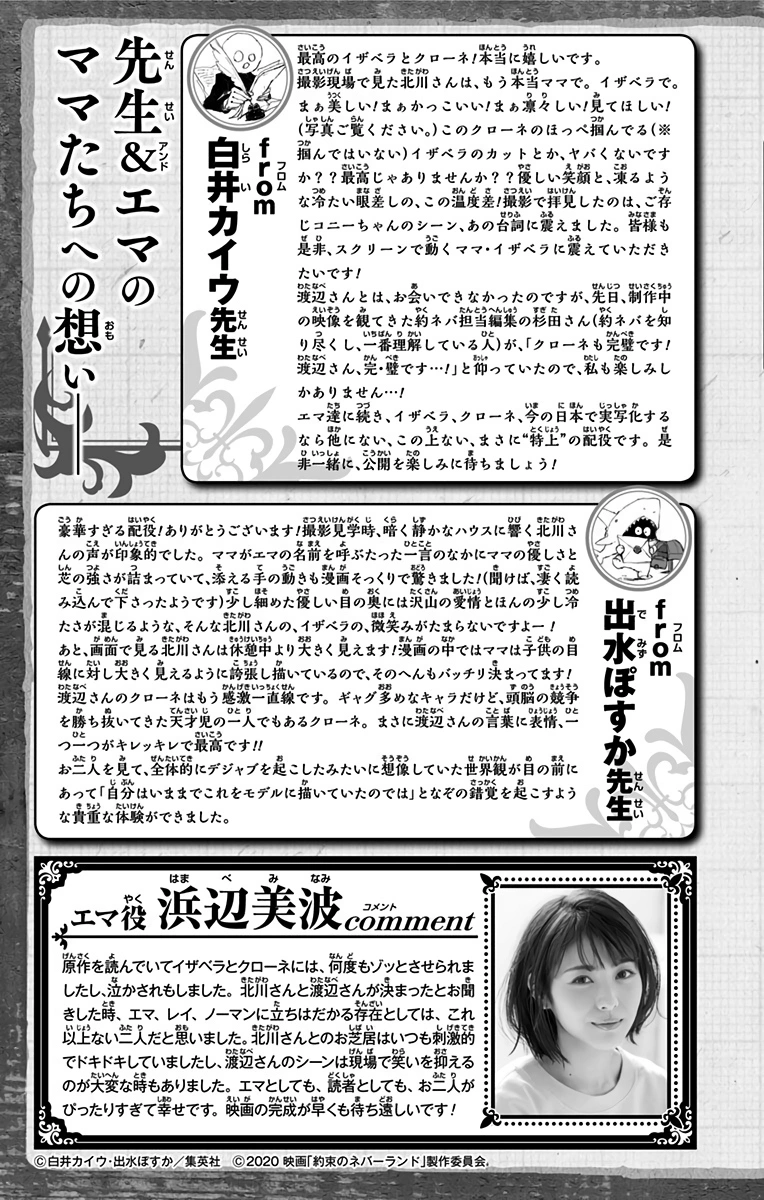 先生&エマの
ママたちへの想い
from
白井カイウ先生
最高のイザベラとクローネ!本当に嬉しいです。
撮影現場で見た北川さんは、もう本当ママで。イザベラで。
まぁ美しい!まぁかっこいい!まぁ凛々しい!見てほしい!
(写真ご覧ください。)このクローネのほっぺ掴んでる(※
掴んではいない)イザベラのカットとか、ヤバくないです
か??最高じゃありませんか??優しい笑顔と、凍るよう
な冷たい眼差しの、この温度差!撮影で拝見したのは、ご存
じコニーちゃんのシーン、あの台詞に震えました。皆様も
是非、スクリーンで動くママ・イザベラに震えていただき
たいです!
渡辺さんとは、お会いできなかったのですが、先日、制作中
の映像を観てきた約ネバ担当編集の杉田さん(約ネバを知
り尽くし、一番理解している人)が、「クローネも完璧です!
渡辺さん、完・璧です…!」と仰っていたので、私も楽しみし
かありません…!
エマ達に続き、イザベラ、クローネ、今の日本で実写化する
なら他にない、この上ない、まさに“特上”の配役です。是
非一緒に、公開を楽しみに待ちましょう!
from
出水ぽすか先生
豪華すぎる配役!ありがとうございます!撮影見学時、暗く静かなハウスに響く北川さ
んの声が印象的でした。ママがエマの名前を呼ぶたった一言のなかにママの優しさと
芯の強さが詰まっていて、添える手の動きも漫画そっくりで驚きました!(聞けば、凄く読
み込んで下さったようです)少し細めた優しい目の奥には沢山の愛情とほんの少し冷
たさが混じるような、そんな北川さんの、イザベラの、微笑みがたまらないですよー!
あと、画面で見る北川さんは休憩中より大きく見えます!漫画の中ではママは子供の目
線に対し大きく見えるように誇張し描いているので、そのへんもバッチリ決まってます!
渡辺さんのクローネはもう感激一直線です。ギャグ多めなキャラだけど、頭脳の競争
を勝ち抜いてきた天才児の一人でもあるクローネ。まさに渡辺さんの言葉に表情、一
つ一つがキレッキレで最高です!!
お二人を見て、全体的にデジャブを起こしたみたいに想像していた世界観が目の前に
あって「自分はいままでこれをモデルに描いていたのでは」となぞの錯覚を起こすよう
な貴重な体験ができました。
エマ役 浜辺美波 comment
原作を読んでいてイザベラとクローネには、何度もゾッとさせられま
したし、泣かされもしました。北川さんと渡辺さんが決まったとお聞
きした時、エマ、レイ、ノーマンに立ちはだかる存在としては、これ
以上ない二人だと思いました。北川さんとのお芝居はいつも刺激的
でドキドキしていましたし、渡辺さんのシーンは現場で笑いを抑える
のが大変な時もありました。エマとしても、読者としても、お二人が
ぴったりすぎて幸せです。映画の完成が早くも待ち遠しいです!
©白井カイウ・出水ぽすか/集英社 ©2020 映画「約束のネバーランド」製作委員会